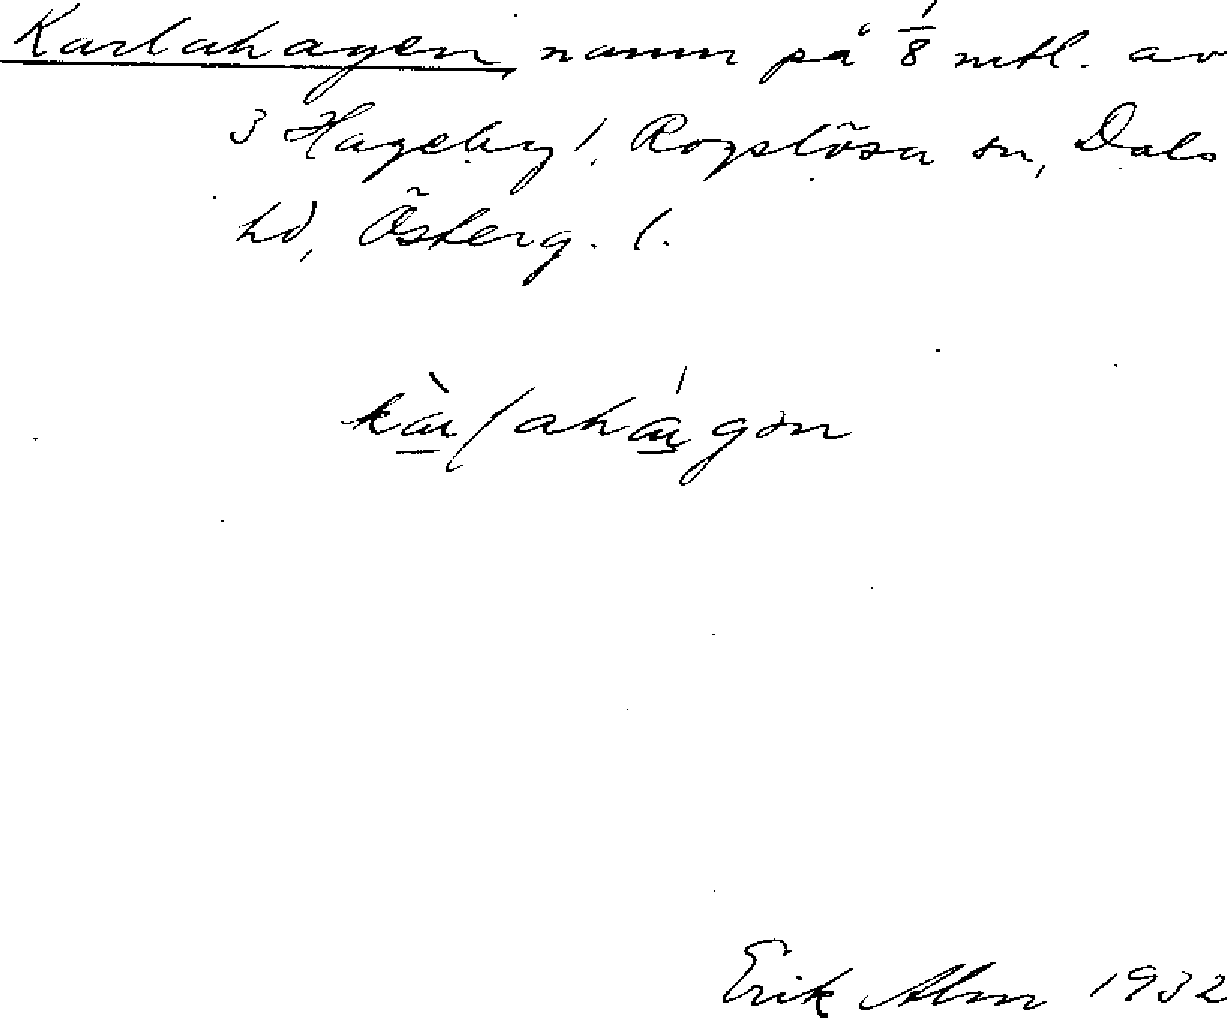 Karlahagen, namn på 1/8 mtl. av
3 Hageby, Rogslösa sn, Dals
hd, Österg. l.
Erik Alm 1932